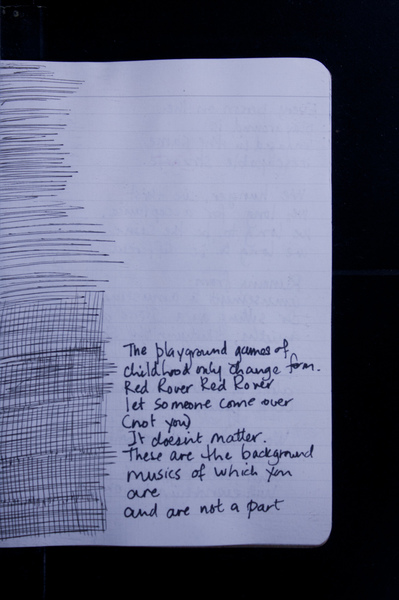 The playground games of
childhood only change form.
Red Rover Red Rover
let someone come over
(not you)
It doesn't matter.
These are the background
musics of which you
are
and are not a part